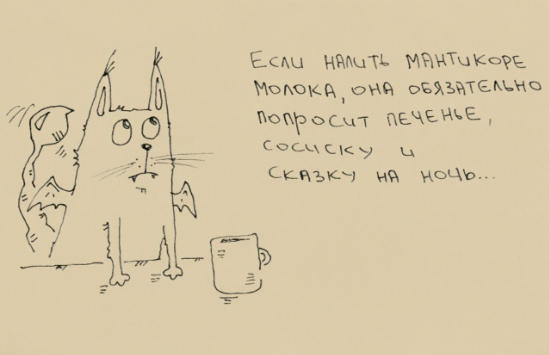 Если налить мантикоре
молока, она обязательно
попросит печенье,
сосиску и
сказку на ночь...